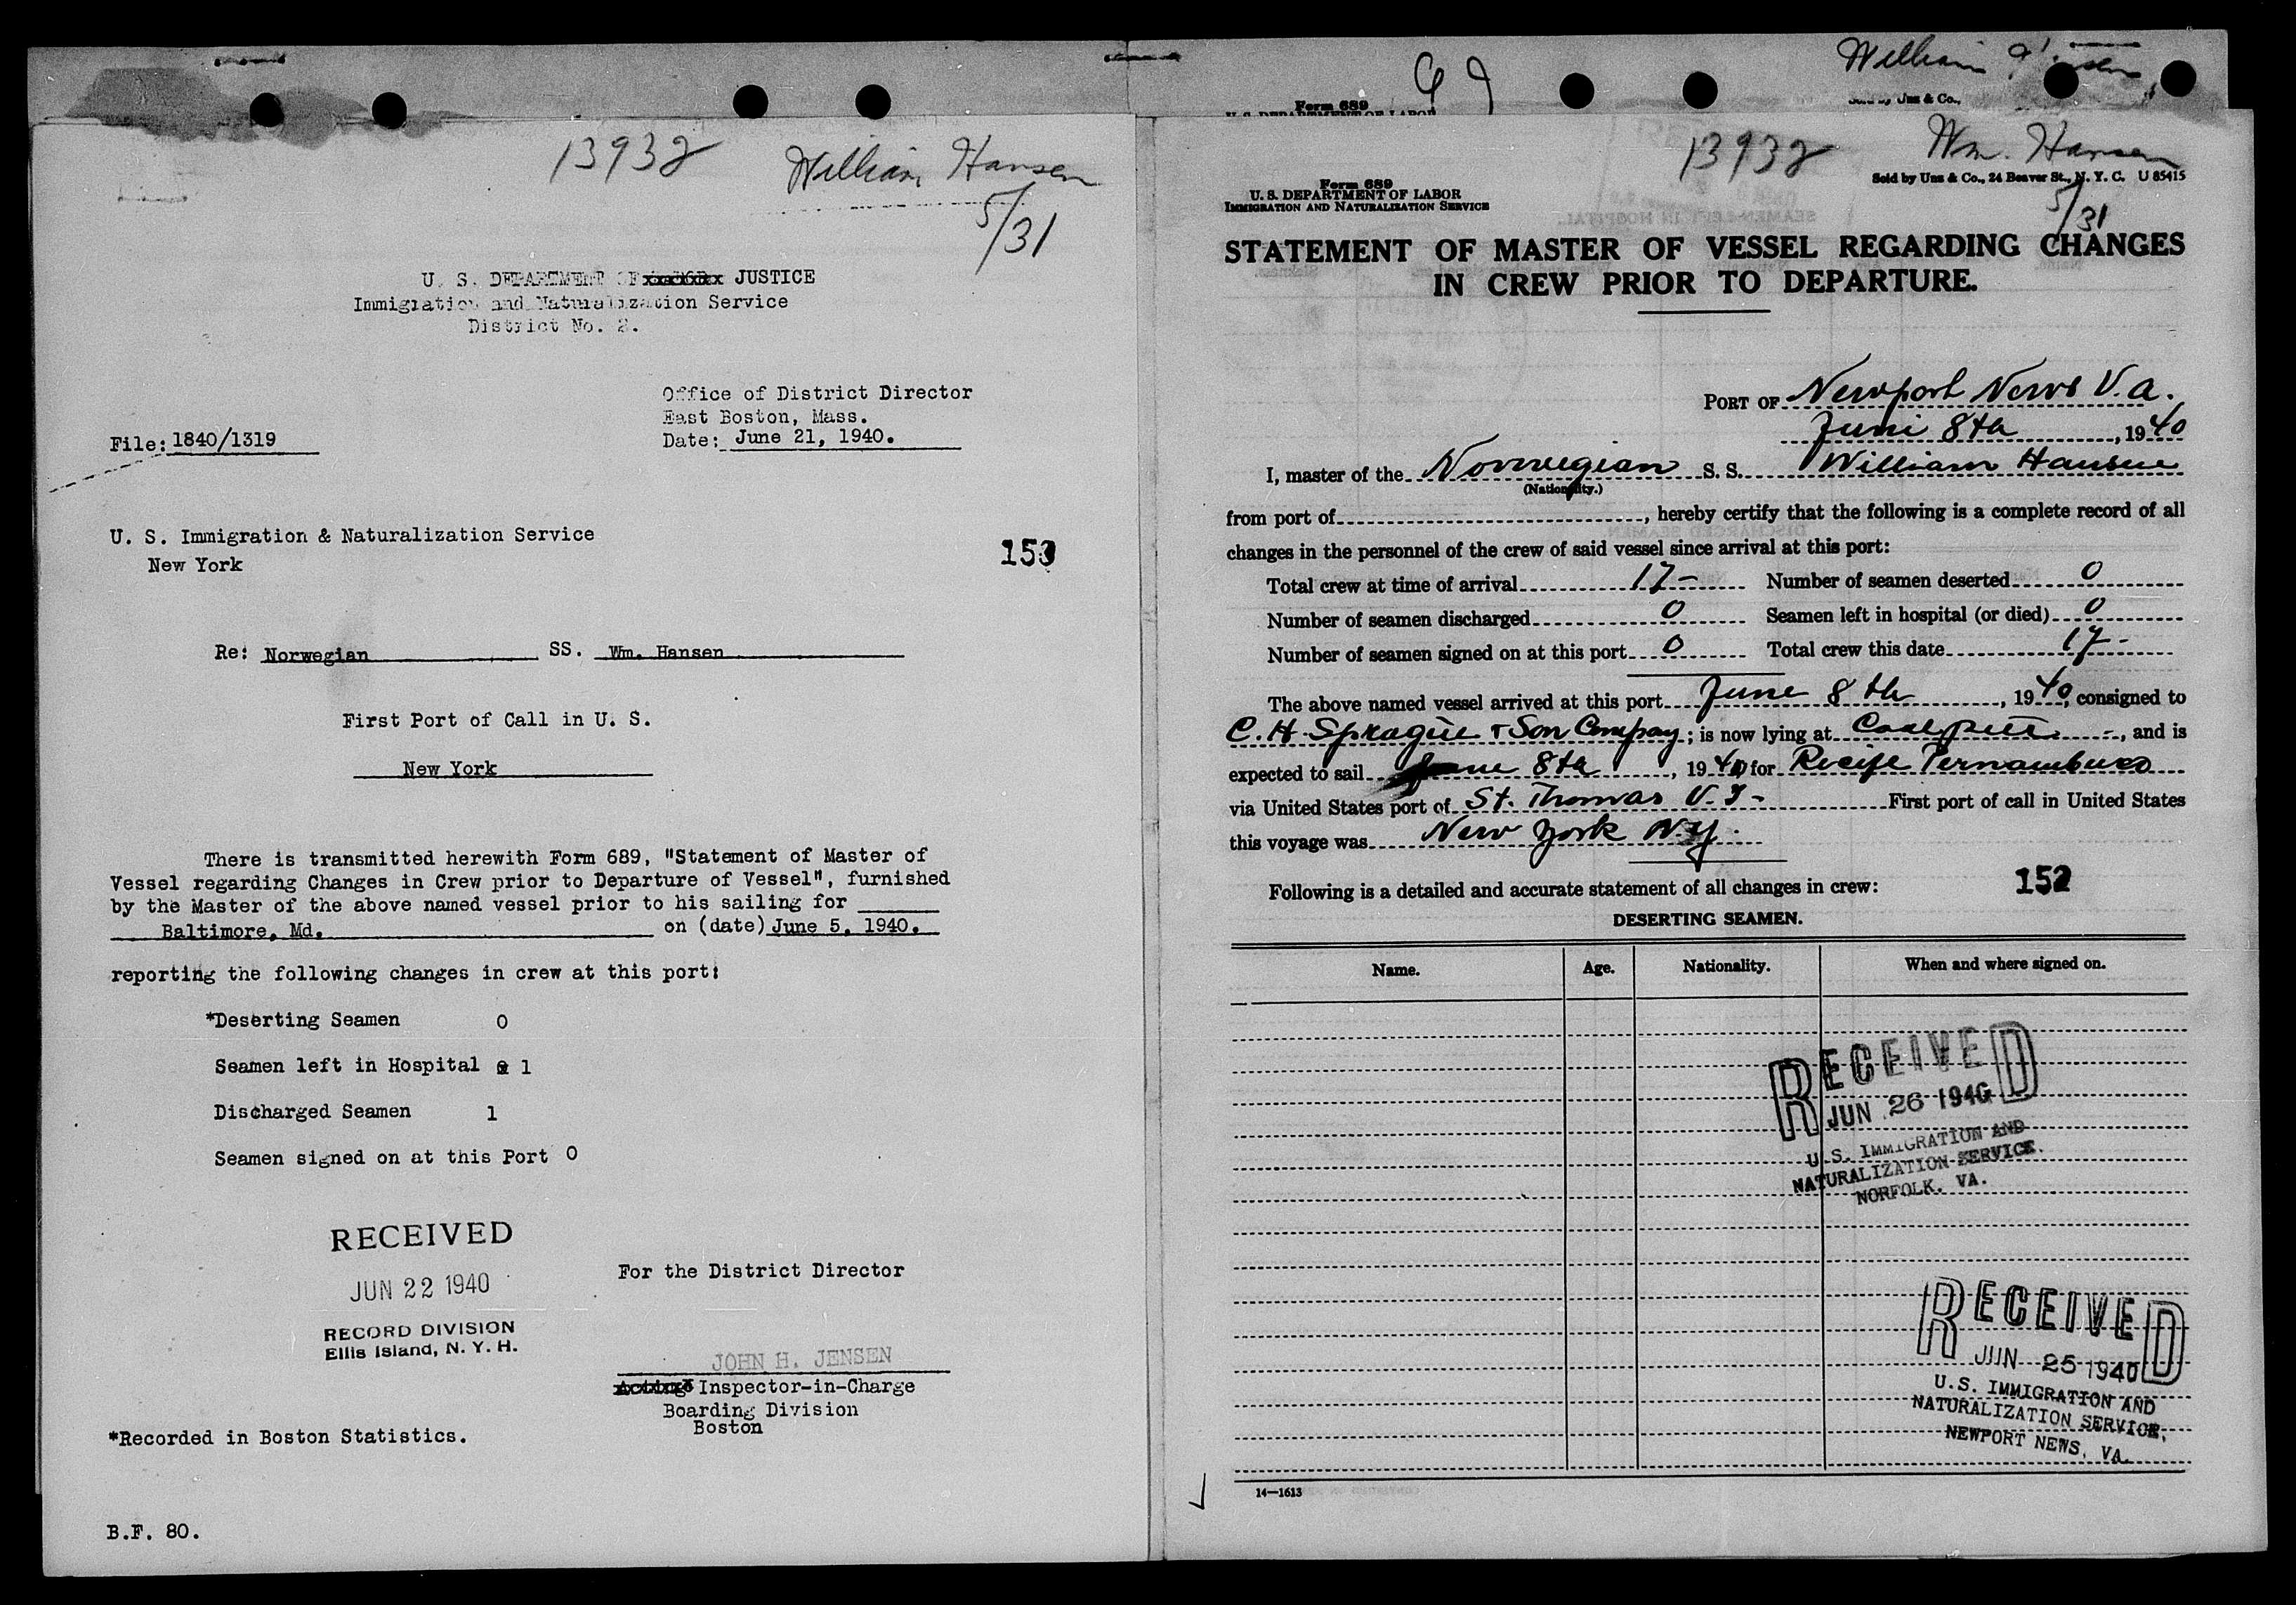 13932 William Hansen
5/31
U. S. DEPARTMENT OF JUSTICE
Immigration and Naturalization Service
District No. 2.
Office of District Director
East Boston, Mass.
File: 1840/1319 Date: June 21, 1940.
U. S. Immigration & Naturalization Service
New York
153
Re: Norwegian SS. Wm. Hansen
First Port of Call in U. S.
New York
There is transmitted herewith Form 689, "Statement of Master of
Vessel regarding Changes in Crew prior to Departure of Vessel", furnished
by the Master of the above named vessel prior to his sailing for
Baltimore, Md. on (date) June 5, 1940.
reporting the following changes in crew at this port:
*Deserting Seamen 0
Seamen left in Hospital 1
Discharged Seamen 1
Seamen signed on at this Port 0
RECEIVED
JUN 22 1940
RECORD DIVISION
Ellis Island, N. Y. H.
For the District Director
JOHN H. JENSEN
Inspector-in-Charge
Boarding Division
Boston
*Recorded in Boston Statistics.
B.F. 80.
William
Form 689
U. S. DEPARTMENT OF LABOR
& Co.,
13932 Wm. Hansen
5/31
Form 689
U. S. DEPARTMENT OF LABOR
IMMIGRATION AND NATURALIZATION SERVICE
Sold by Unz & Co., 24 Beaver St., N. Y. C. U 85415
STATEMENT OF MASTER OF VESSEL REGARDING CHANGES
IN CREW PRIOR TO DEPARTURE.
PORT OF Newport News V.a.
June 8th, 1940
I, master of the Norwegian S. S. William Hansen
(Nationality.)
from port of, hereby certify that the following is a complete record of all
changes in the personnel of the crew of said vessel since arrival at this port:
Total crew at time of arrival 17- Number of seamen deserted 0
Number of seamen discharged 0 Seamen left in hospital (or died) 0
Number of seamen signed on at this port 0 Total crew this date 17-
The above named vessel arrived at this port June 8th, 1940, consigned to
C. H. Sprague & Son Compay; is now lying at, and is
expected to sail June 8th, 1940 for Recife Pernambuco
via United States port of St. Thomas V. I- First port of call in United States
this voyage was New York N.Y.
Following is a detailed and accurate statement of all changes in crew:
152
DESERTING SEAMEN.
Name. Age. Nationality. When and where signed on.
RECEIVED
JUN 26 1940
U.S. IMMIGRATION AND
NATURALIZATION SERVICE.
NORFOLK, VA.
RECEIVED
JUN 25 1940
U.S. IMMIGRATION AND
NATURALIZATION SERVICE,
NEWPORT NEWS, VA.
14—1613